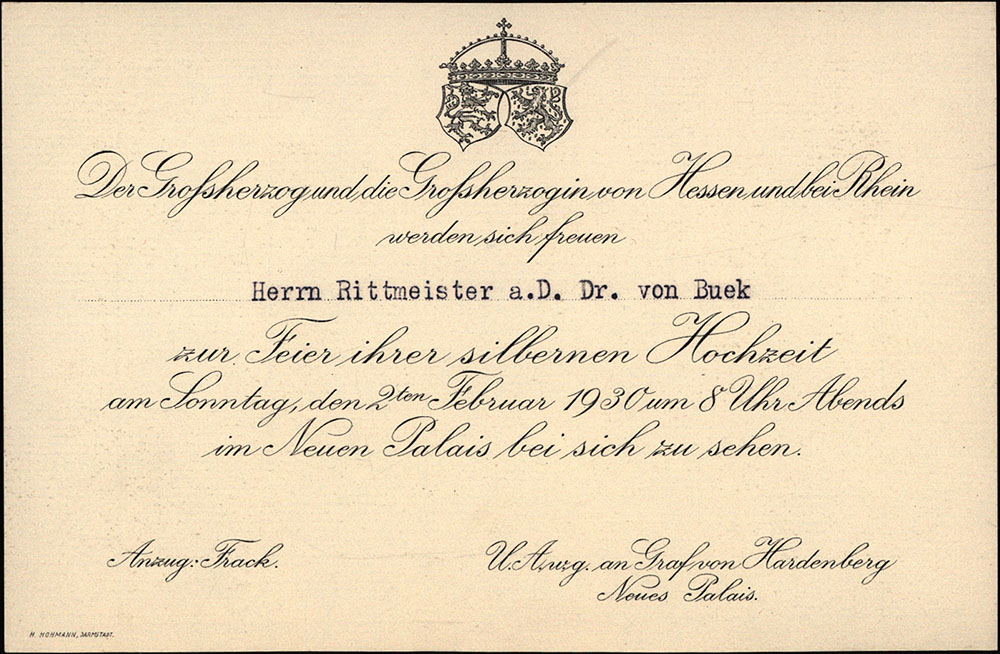 Der Großherzog und die Großherzogin von Hessen und bei Rhein
werden sich freuen
Herrn Rittmeister a.D. Dr. von Buek
zur Feier ihrer silbernen Hochzeit
am Sonntag, den 2ten Februar 1930 um 8 Uhr Abends
im Neuen Palais bei sich zu sehen.
Anzug: Frack.
U. A. w. g. an Graf von Hardenberg
Neues Palais.
H. HOHMANN, DARMSTADT.